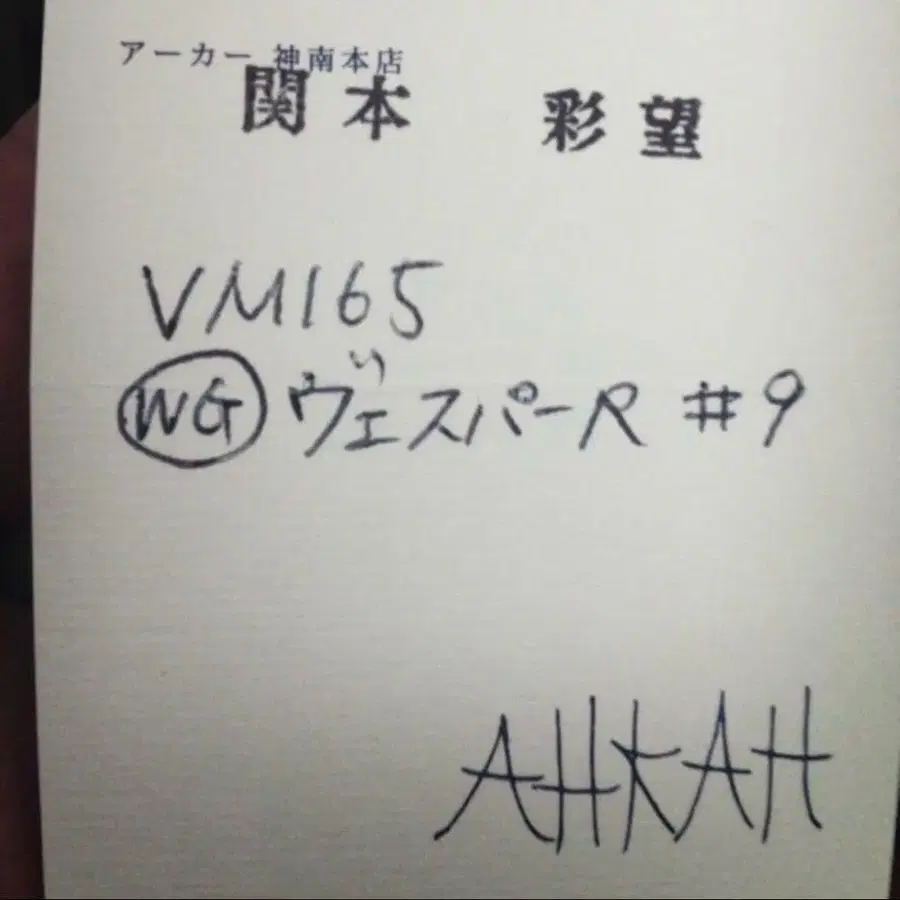 アーカー 神南本店
関本 彩望
VM165
WG ヴェスパーR #9
AHKAH